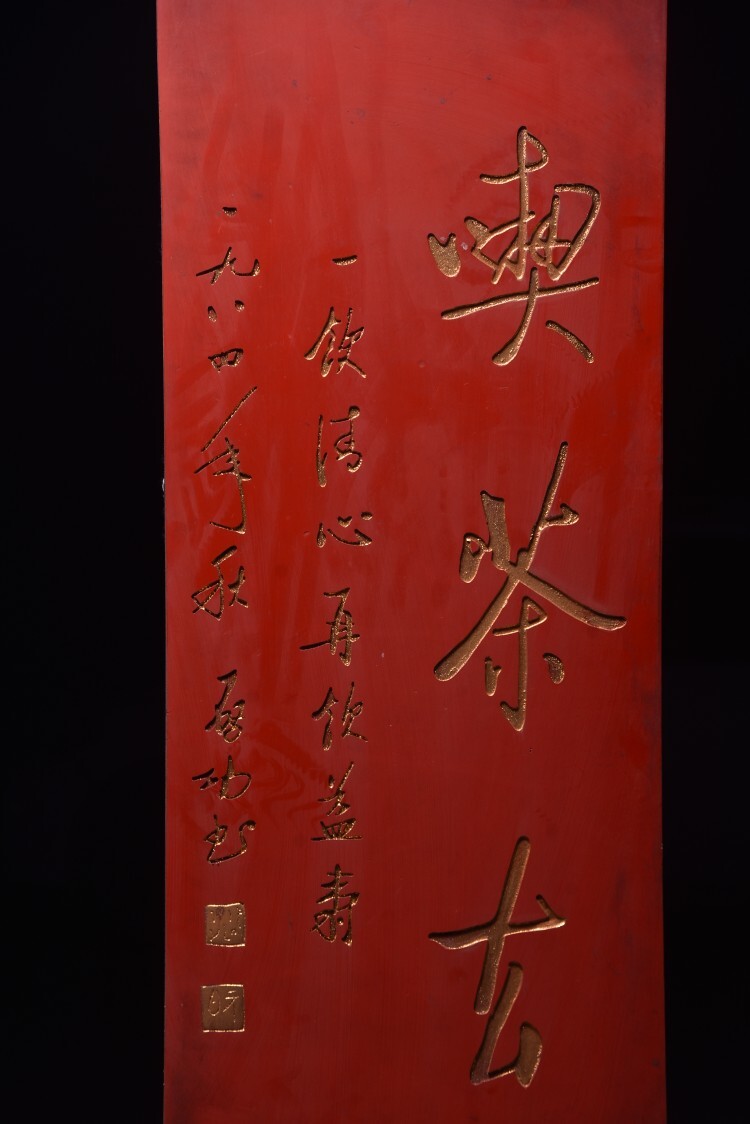 喫茶去
一飲清心再飲益壽
一九八四年秋 启功书